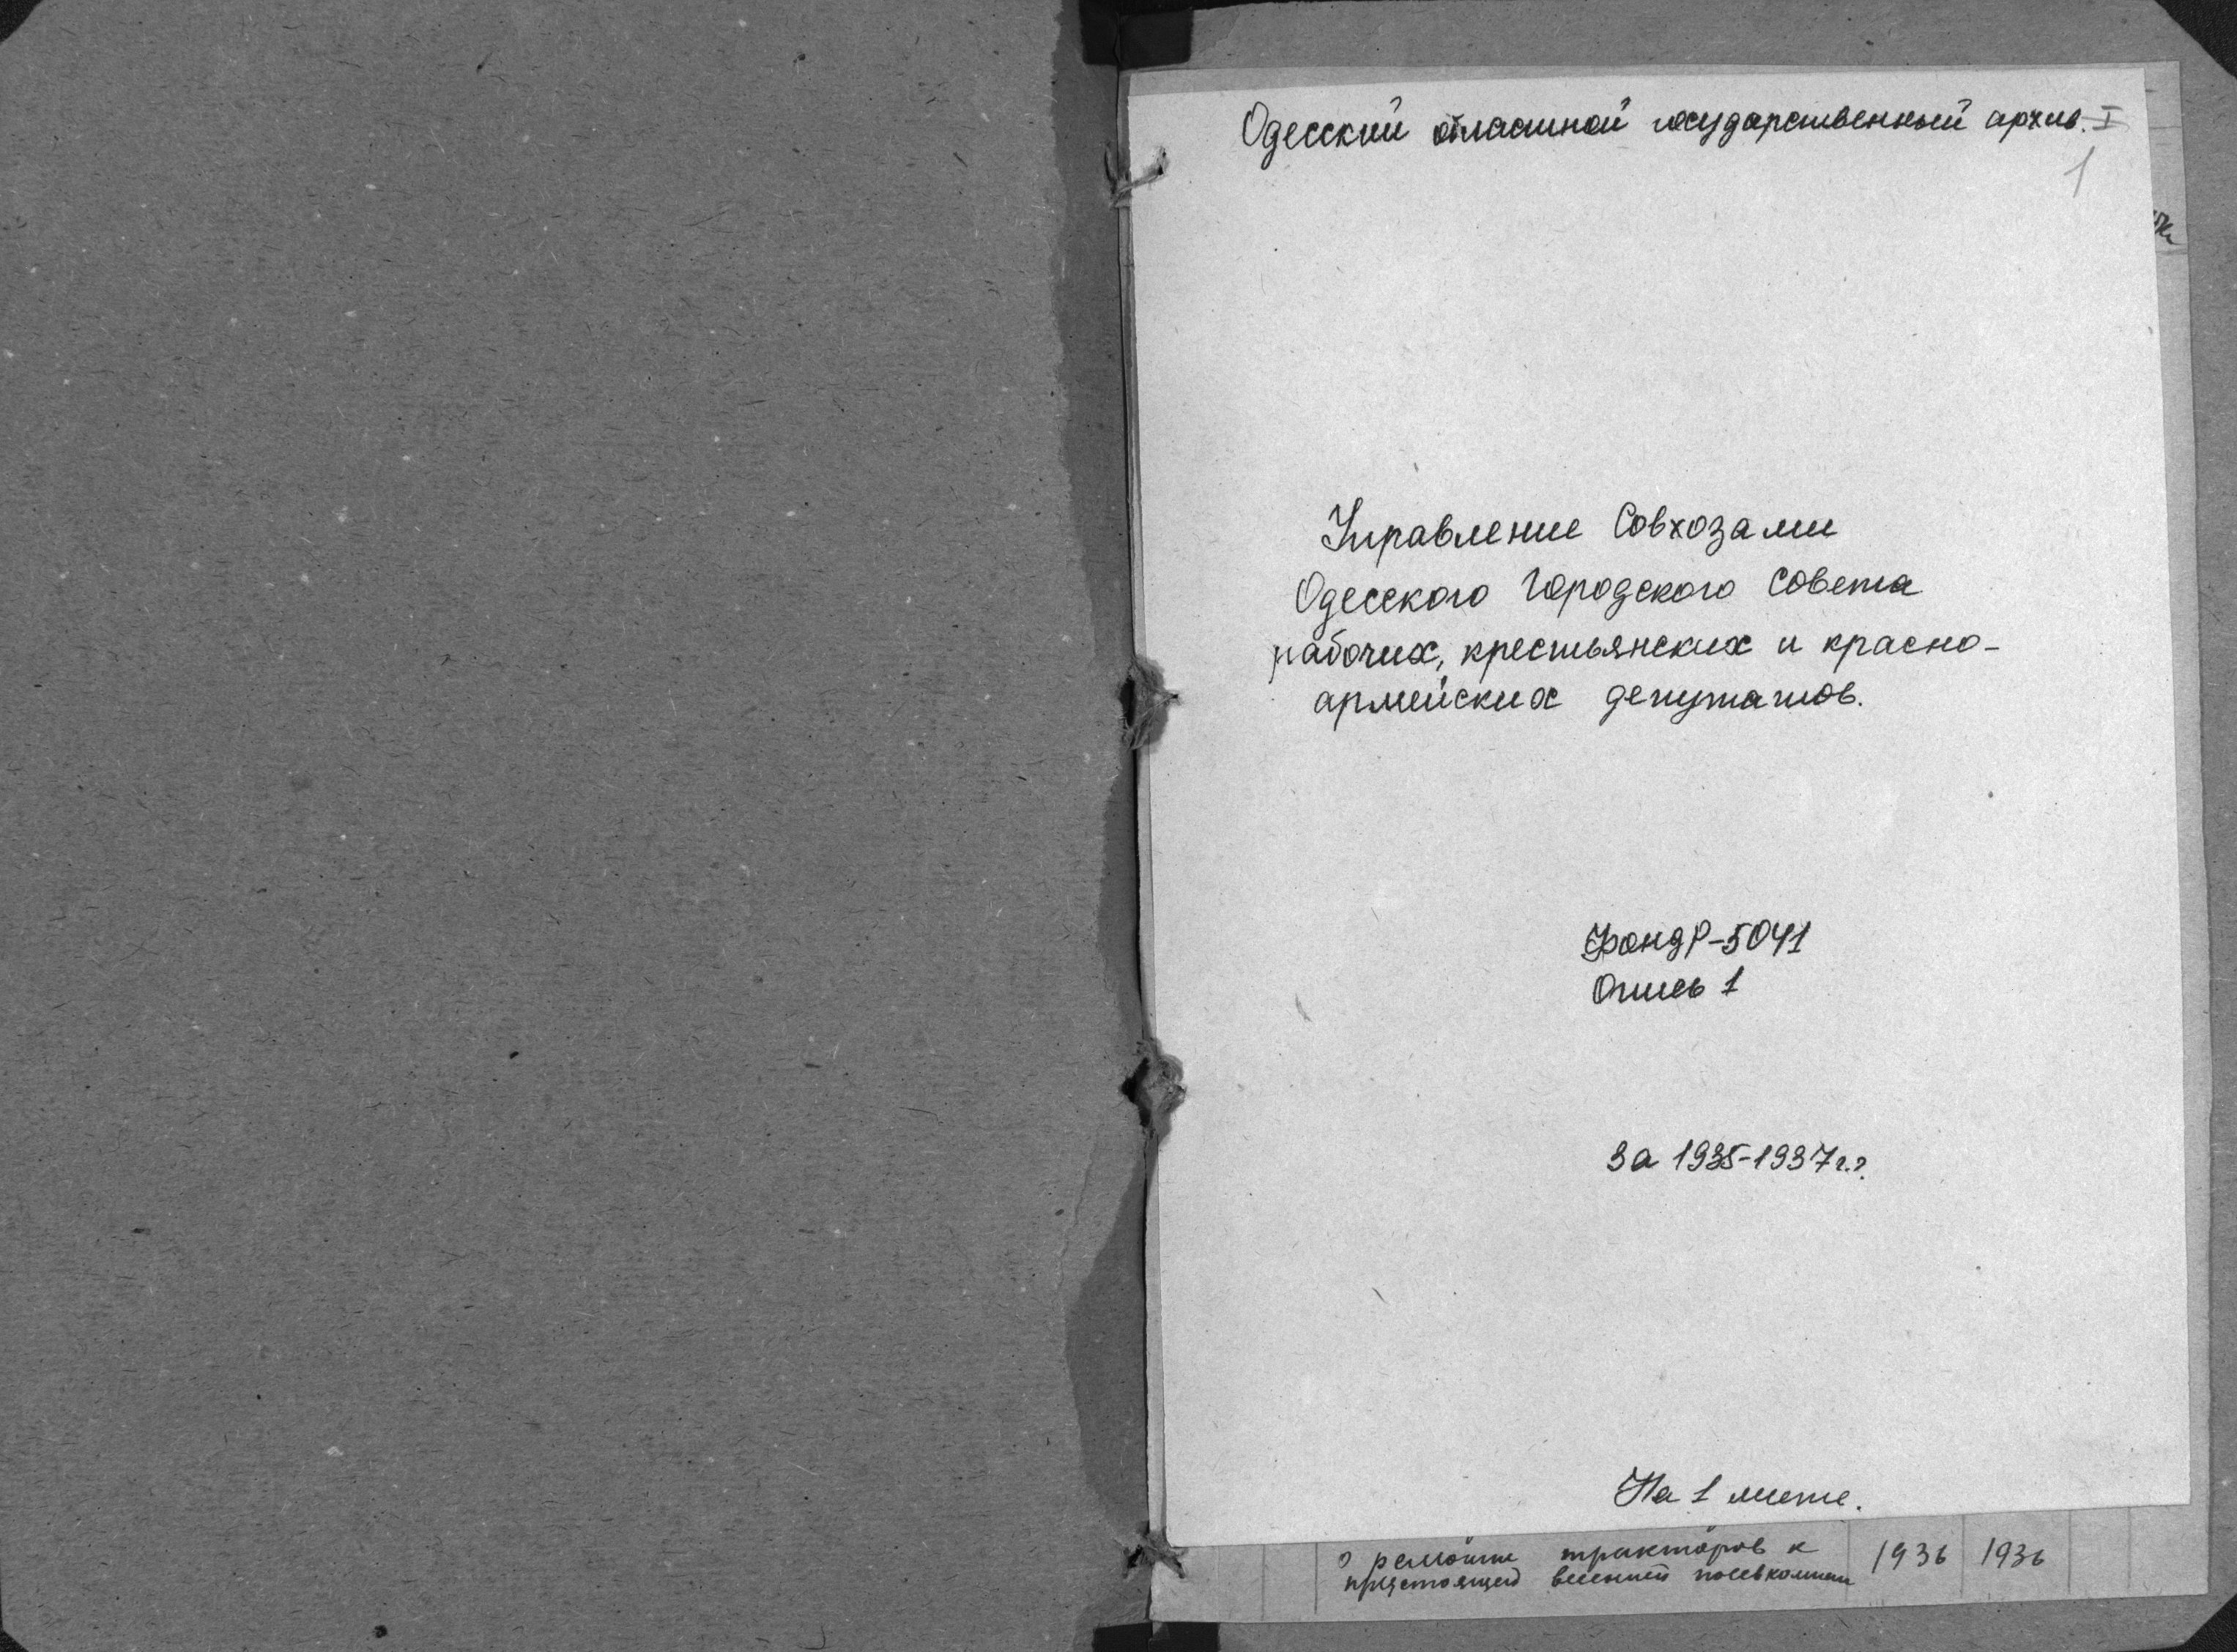 Одесский областной государственный архив. I
1
Управление Совхозами
Одесского Городского Совета
рабочих, крестьянских и красно-
армейских депутатов.
Фонд Р-5041
Опись 1
За 1935-1937 г.г.
На 1 листе.
О ремонте тракторов к 1936 1936
предстоящей весенней посевкомпан